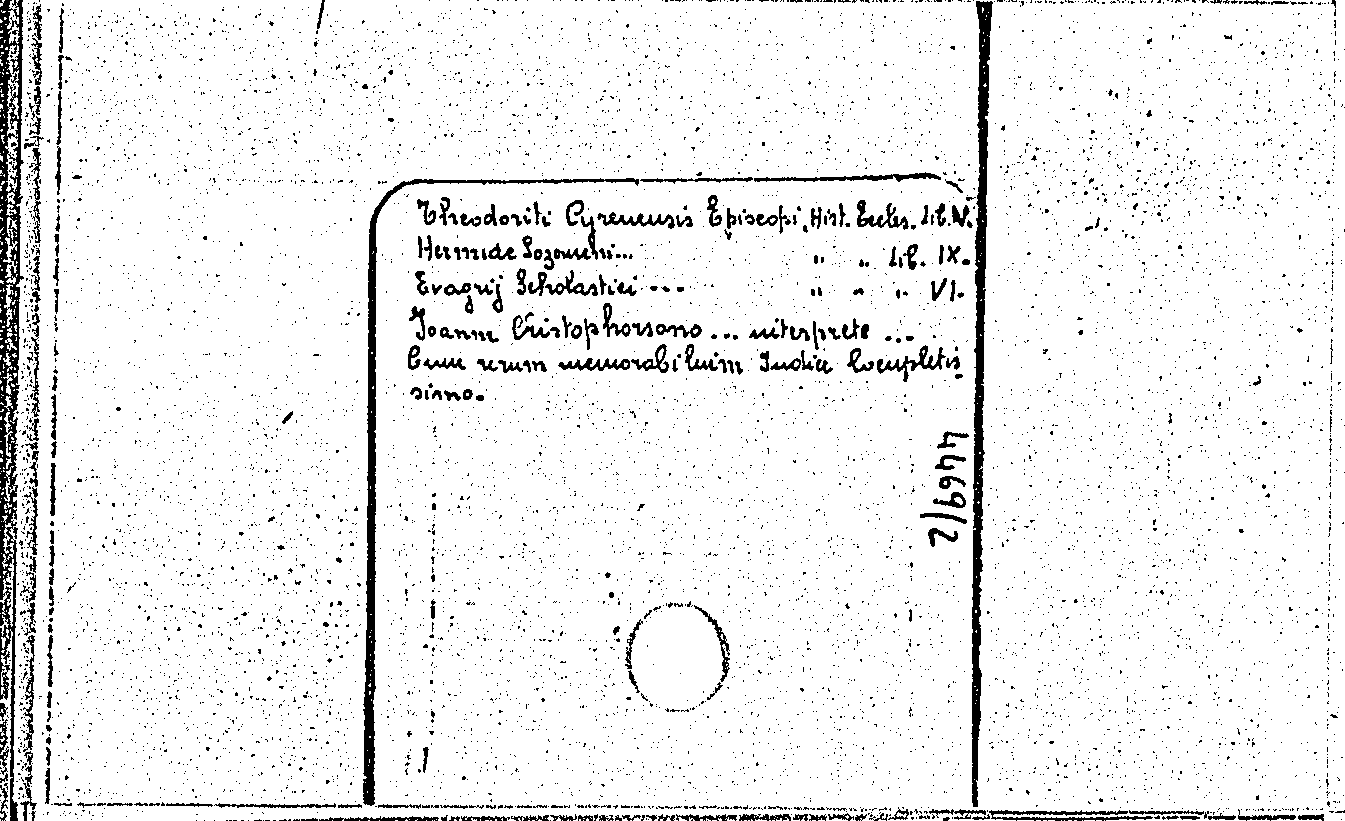 Theodoriti Cyrenensis Episcopi, Hist. Eccles. Lib. V.
Hermide Sozomeni... " " Lib. IX.
Evagrij Scholastici --- " " " VI.
Joanne Cristophorsono ... interprete ...
Cum rerum memorabilium Indice locupletis_
simo.
4469/2